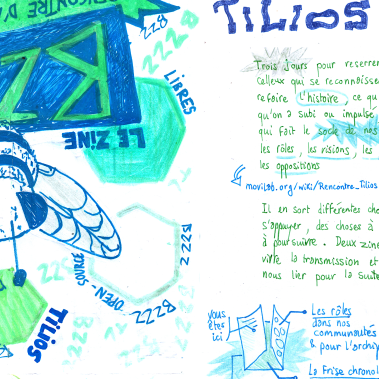 RENCONTRE D'A
ZZ8
BZZ
LIBRES
LE ZINE
BZZZ
SOURCE
OPEN-
BZZZ
TILIOS
TILIOS
Trois jours pour reserrer
celleux qui se reconnaisse
refaire l'histoire, ce qu
qu'on a subi ou impulsé
qui fait le socle de nos
les rôles, les visions, les
les oppositions
movilab.org/wiki/Rencontre_Tilios
Il en sort différentes cho
s'appuyer, des choses à
à poursuivre. Deux zine
vivre la transmission et
nous lier pour la suite
vous
êtes
ici
Les rôles
dans nos
communautés
& pour l'archip
La Frise chronol